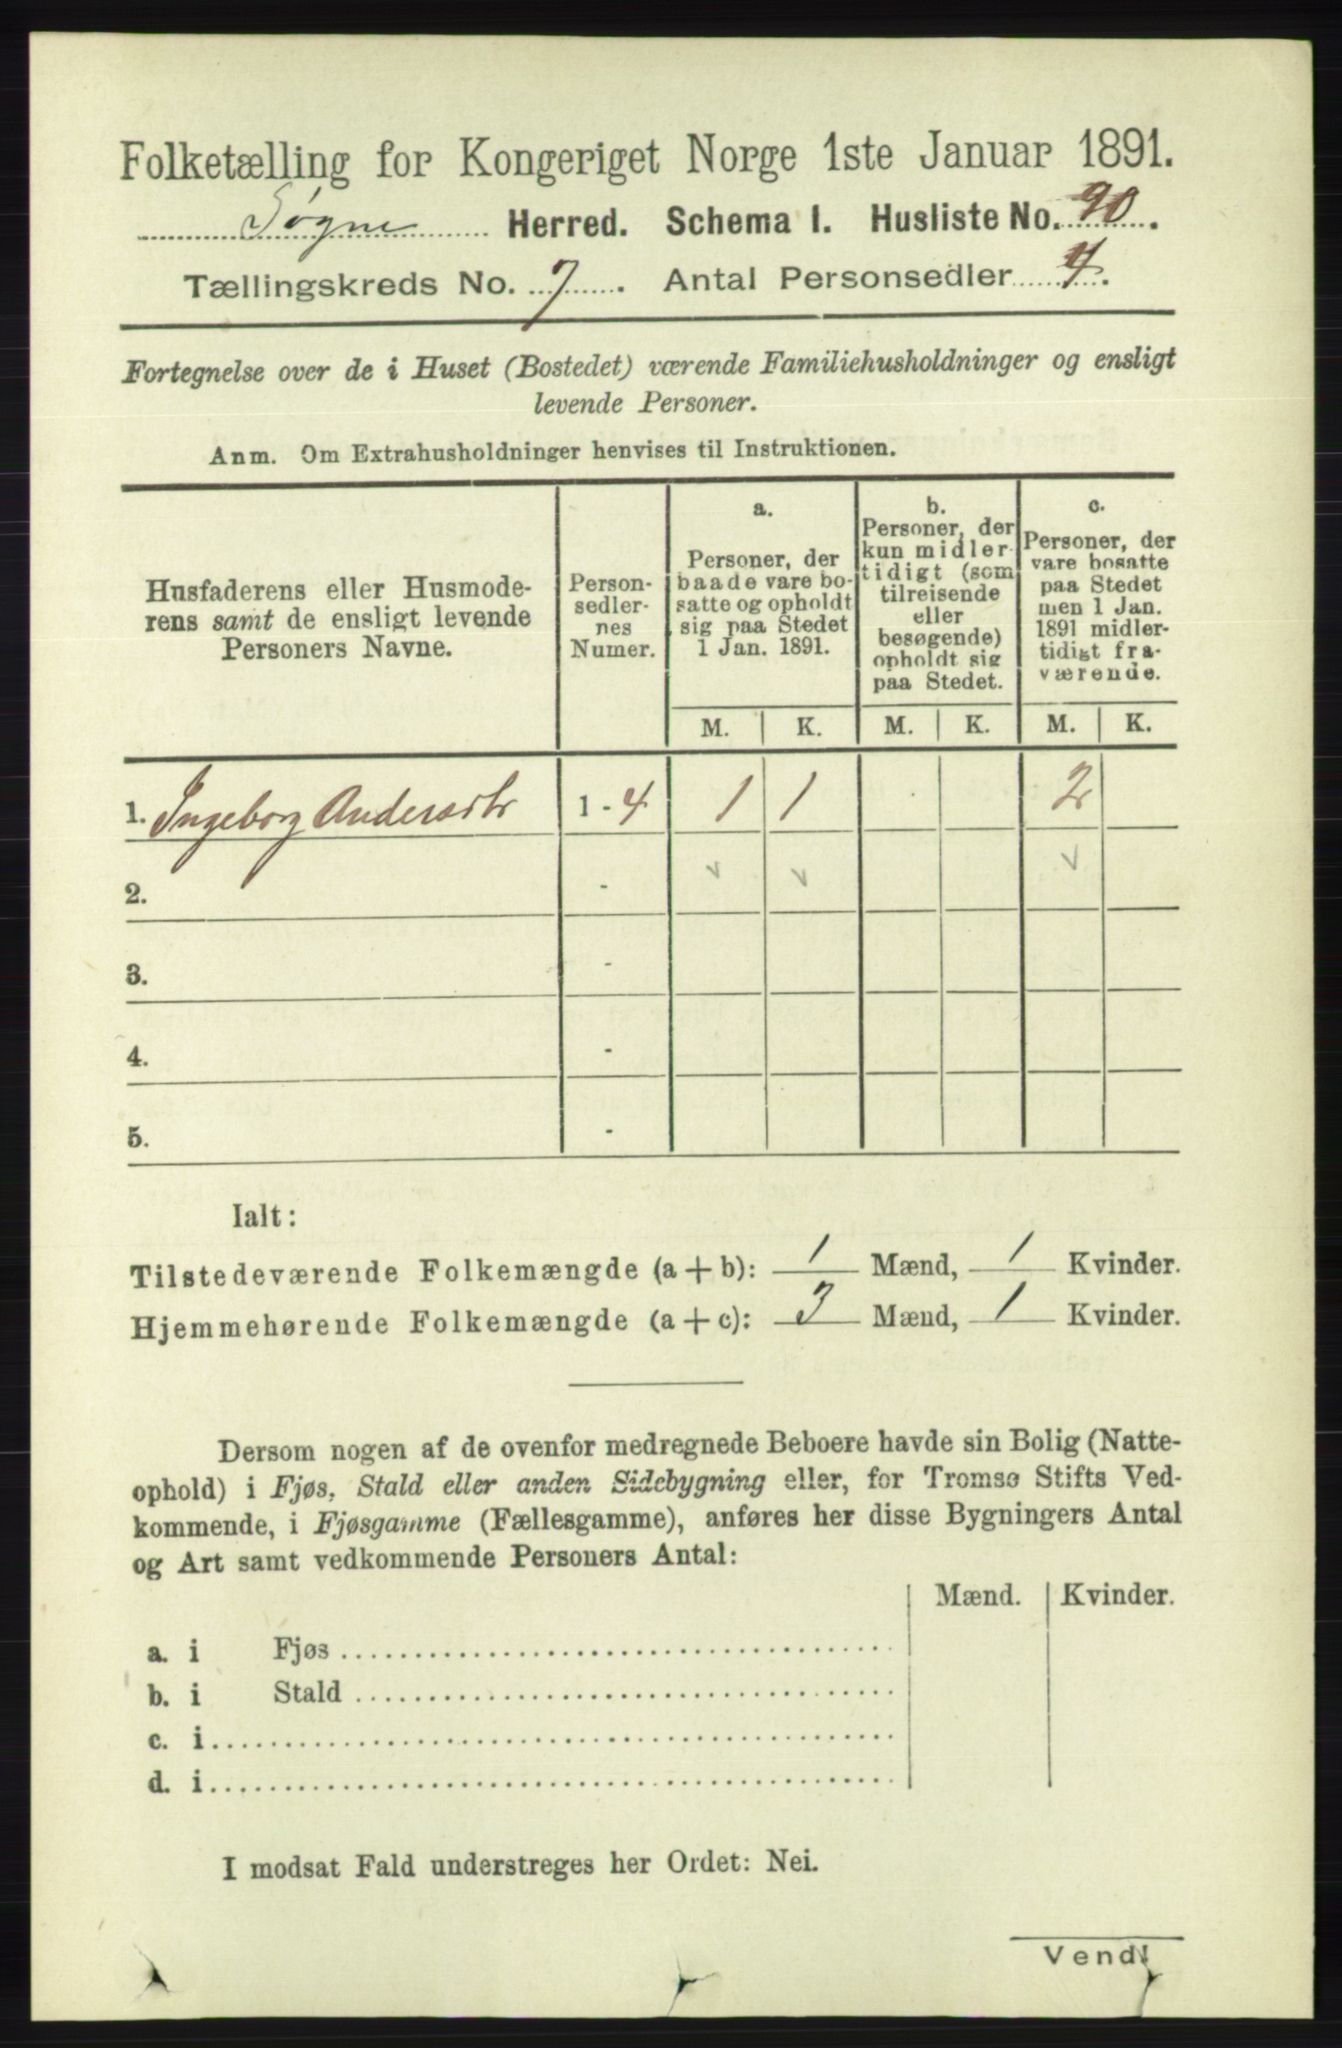 Folketælling for Kongeriget Norge 1ste Januar 1891.
Søgne Herred. Schema I. Husliste No. 90.
Tællingskreds No. 7. Antal Personsedler 4.
Fortegnelse over de i Huset (Bostedet) værende Familiehusholdninger og ensligt
levende Personer.
Anm. Om Extrahusholdninger henvises til Instruktionen.
Husfaderens eller Husmode-
rens samt de ensligt levende
Personers Navne.
Person-
sedler-
nes
Numer.
a.
Personer, der
baade vare bo-
satte og opholdt
sig paa Stedet
1 Jan. 1891.
b.
Personer, der
kun midler-
tidigt (som
tilreisende
eller
besøgende)
opholdt sig
paa Stedet.
c.
Personer, der
vare bosatte
paa Stedet
men 1 Jan.
1891 midler-
tidigt fra-
værende.
M. K. M. K. M. K.
1. Ingeborg Andersdtr 1 - 4 1 1 2
2. -
3. -
4. -
5. -
Ialt:
Tilstedeværende Folkemængde (a + b): 1 Mænd, 1 Kvinder.
Hjemmehørende Folkemængde (a + c): 3 Mænd, 1 Kvinder.
Dersom nogen af de ovenfor medregnede Beboere havde sin Bolig (Natte-
ophold) i Fjøs, Stald eller anden Sidebygning eller, for Tromsø Stifts Ved-
kommende, i Fjøsgamme (Fællesgamme), anføres her disse Bygningers Antal
og Art samt vedkommende Personers Antal:
Mænd. Kvinder.
a. i Fjøs
b. i Stald
c. i
d. i
I modsat Fald understreges her Ordet: Nei.
Vend!